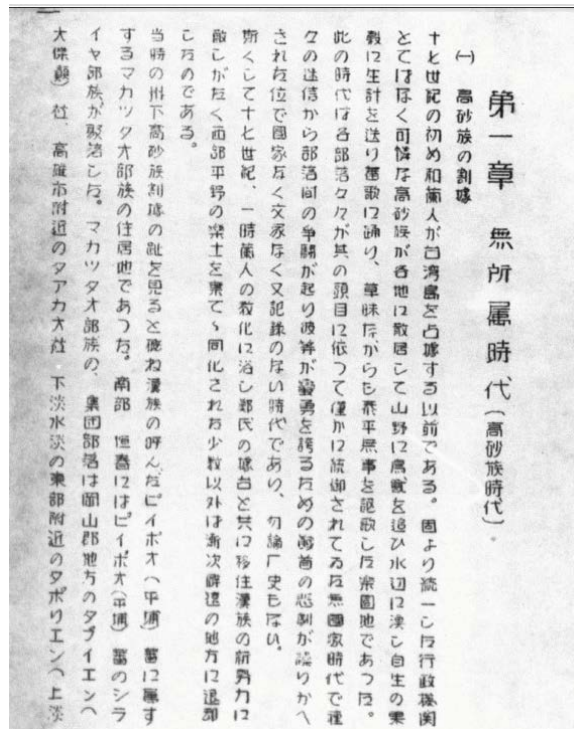 第一章 無所屬時代(高砂族時代)
㈠ 高砂族の割據
十七世紀の初め和蘭人が台湾島を占據する以前である。固より統一した行政機関
とてはなく可憐な高砂族が各地に散居して山野に鳥獣を追ひ水辺に漁し自生の果
穀に生計を送り蕃歌に踊り、草昧ながらも泰平無事を謳歌した楽園地であつた。
此の時代は各部落々々が其の頭目に依つて僅かに統御されてゐた無國家時代で種
々の迷信から部落间の争鬪が起り彼等が蛮勇を誇るための馘首の悲劇が繰りかへ
された位で國家なく文家なく又記録のない時代であり、勿論厂史もない。
斯くして十七世紀、一時蘭人の教化に浴し鄭氏の據台と共に移住漢族の新勢力に
敵しがたく西部平野の楽土を棄てゝ同化された少数以外は漸次僻遠の地方に退却
したのである。
当時の州下高砂族割據の趾を見ると概ね漢族の呼んだピイポオ(平埔)蕃に属す
するマカツタオ部族の住居地であつた。南部 恒春にはピイポオ(平埔)蕃のシラ
イヤ部族が聚落した。マカツタオ部族の、集団部落は岡山郡地方のタプイエン(
大傑顛)社、高雄市附近のタアカオ社 下淡水渓の東部附近のタポリエン(上淡